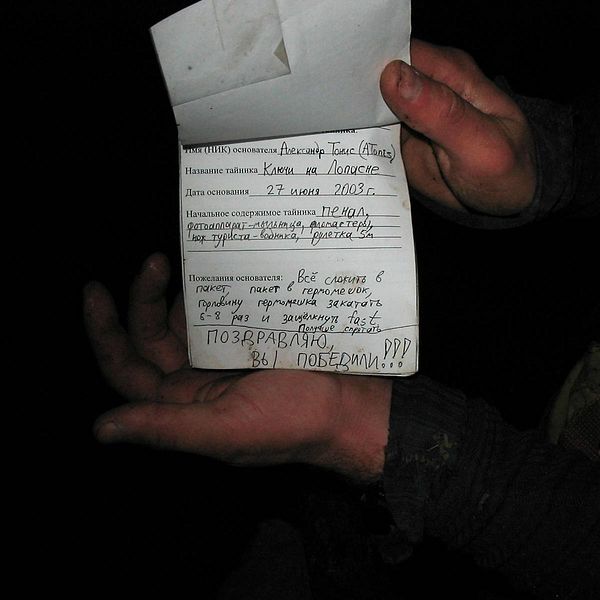 Имя (НИК) основателя Александр Тонис (ATonis)
Название тайника Ключи на Лопасне
Дата основания 27 июня 2003 г.
Начальное содержимое тайника пенал,
фотоаппарат-мыльница, фломастеры,
нож туриста-водника, рулетка 5м
Пожелания основателя: Всё сложить в
пакет, пакет в гермомешок,
горловину гермомешка закатать
6-8 раз и защёлкнуть fast
Получше спрятать
ПОЗДРАВЛЯЮ,
ВЫ ПОБЕДИЛИ!!!